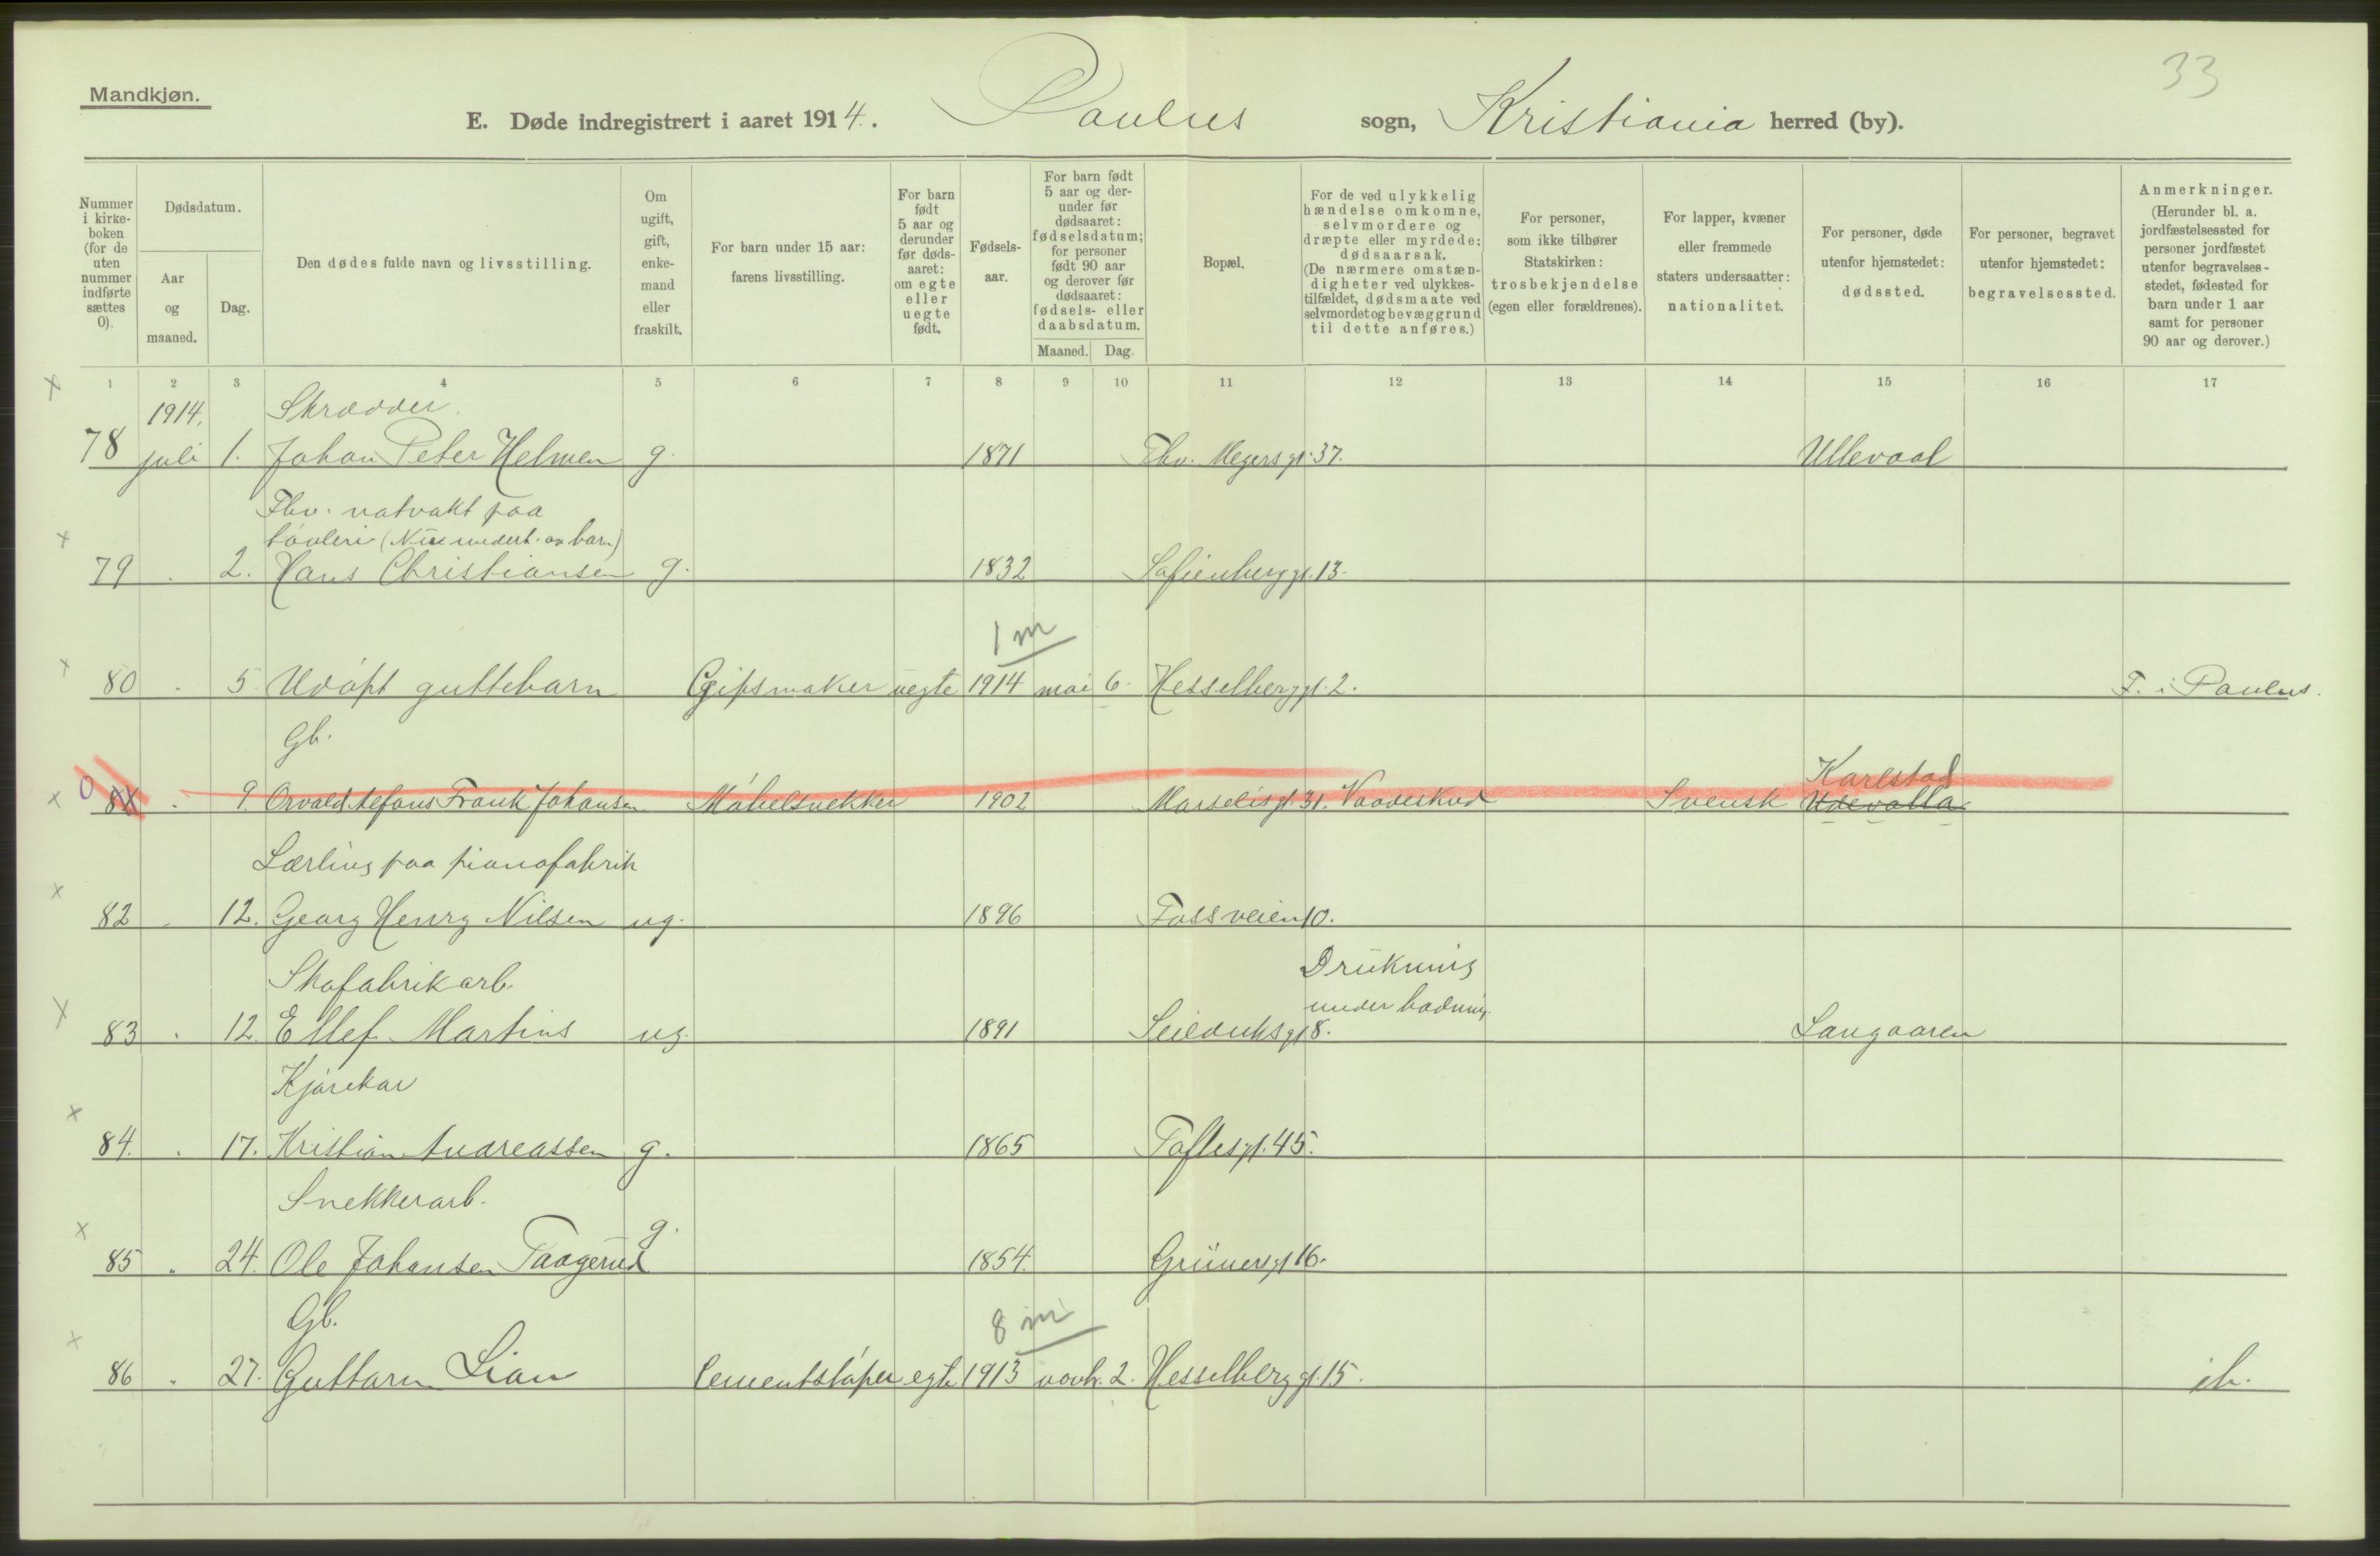 33
Mandkjøn.
E. Døde indregistrert i aaret 1914. Paulus sogn, Kristiania herred (by).
Nummer i kirke-boken (for de uten nummer indførte sættes 0).
Dødsdatum.
Aar og maaned.
Dag.
Den dødes fulde navn og livsstilling.
Om ugift, gift, enke-mand eller fraskilt.
For barn under 15 aar: farens livsstilling.
For barn født 5 aar og derunder før døds-aaret: om egte eller uegte født.
Fødsels-aar.
For barn født 5 aar og der-under før dødsaaret: fødselsdatum; for personer født 90 aar og derover før dødsaaret: fødsels- eller daabsdatum.
Maaned. Dag.
Bopæl.
For de ved ulykkelig hændelse omkomne, selvmordere og dræpte eller myrdede: dødsaarsak. (De nærmere omstæn-digheter ved ulykkes-tilfældet, dødsmaate ved selvmordet og bevæggrund til dette anføres.)
For personer, som ikke tilhører Statskirken: trosbekjendelse (egen eller forældrenes).
For lapper, kvæner eller fremmede staters undersaatter: nationalitet.
For personer, døde utenfor hjemstedet: dødssted.
For personer, begravet utenfor hjemstedet: begravelsessted.
Anmerkninger. (Herunder bl. a. jordfæstelsessted for personer jordfæstet utenfor begravelses-stedet, fødested for barn under 1 aar samt for personer 90 aar og derover.)
1 2 3 4 5 6 7 8 9 10 11 12 13 14 15 16 17
x 1914. Skrædder.
78 juli 1. Johan Peter Helmen g. 1871 Thv. Meyers gt. 37. Ullevaal
Fhv. natvakt paa
x (Nu underh. av barn)
79 . 2. Hans Christiansen g. 1832 Sofienberg gt. 13.
1 m
x 80 . 5. Udøpt guttebarn Gipsmaker uegte 1914 mai 6. Hesselberg gt. 2. F. i Paulus.
Gb. Karlstad
x 0 81 . 9. Orvald Alfons Frank Johansen Møbelsnekker 1902 Marselis gt. 31. Vaadeskud Svensk Udevalla
Lærling paa pianofabrik
x 82 . 12. Georg Henry Nilsen ug. 1896 Fossveien 10.
Skofabrikarb. Drukning under badning.
x 83 . 12. Ellef Martins ug. 1891 Seilduksgt 8. Langaaren
Kjørekar
x 84. . 17. Kristian Andreassen g. 1865 Toftesgt. 45.
Snekkerarb.
x 85 . 24. Ole Johansen Taagerud g. 1854. Grünersgt 16.
Gb. 8 m
x 86 . 27. Guttorm Lian Cementstøper egte 1913 novb. 2. Hesselberg gt. 15. ib.